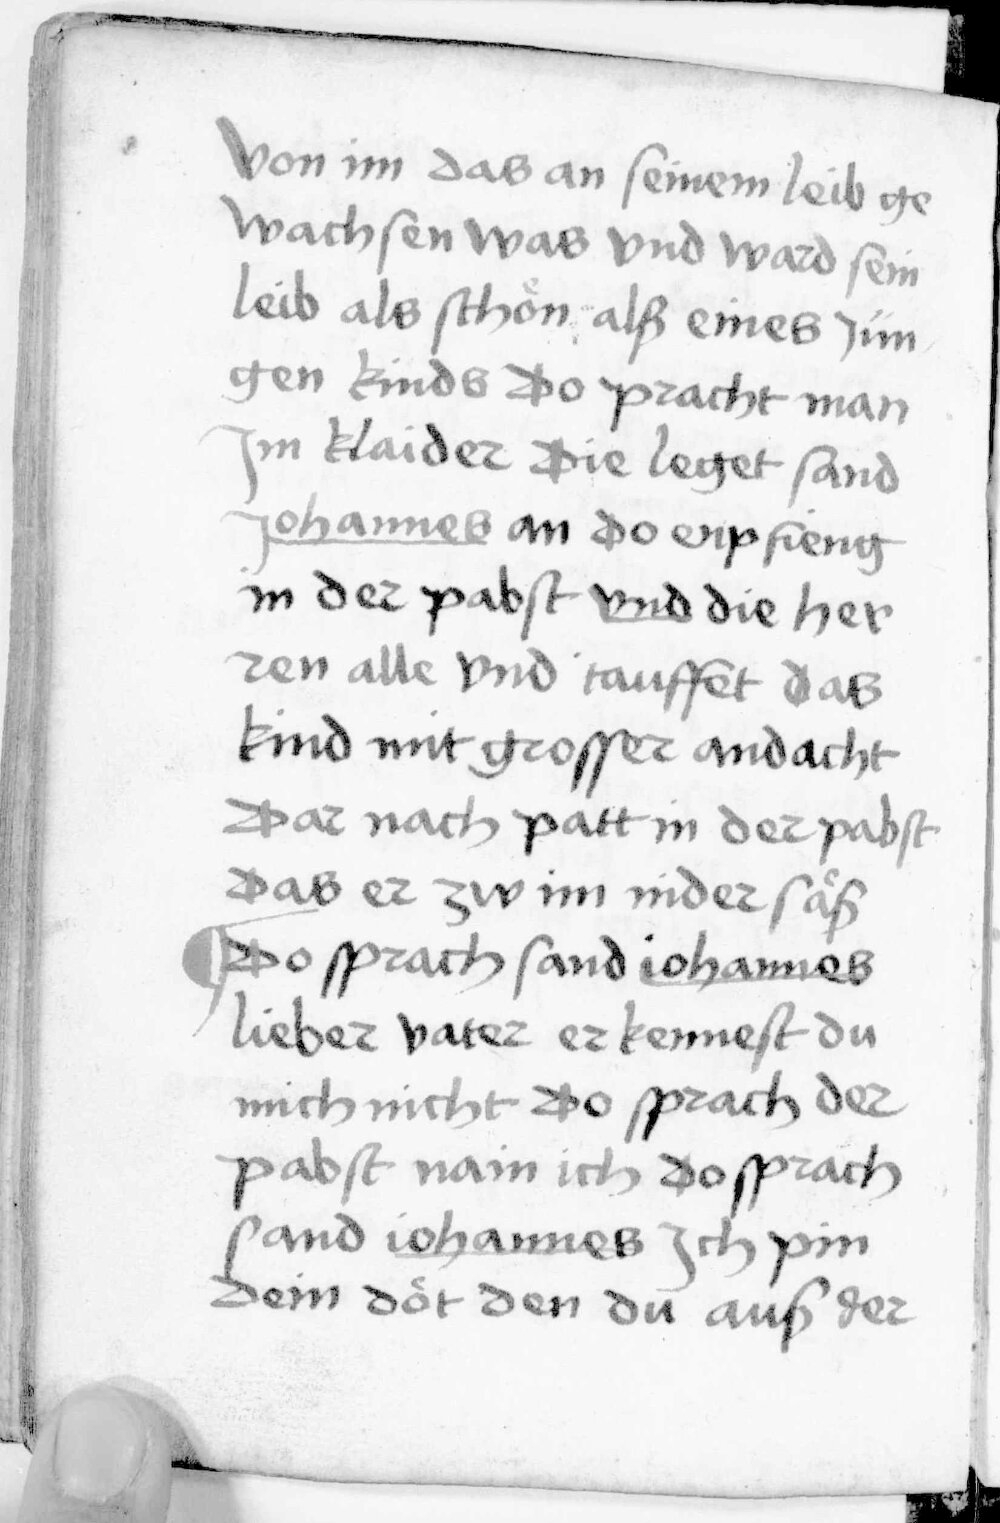 von im das an seinem leib ge
wachsen was vnd ward sein
leib als schoͤn alß eines Jun
gen kinds Do pracht man
Im klaider Die leget sand
Johannes an Do enpfieng
in der pabst vnd die her
ren alle vnd tauffet das
kind mit grosser andacht
Dar nach patt in der pabst
Das er zw im nider saͤß
Do sprach sand iohannes
lieber vater erkennest du
mich nicht Do sprach der
pabst nain ich Do sprach
sand iohannes Ich pin
dein doͤt den du auß der